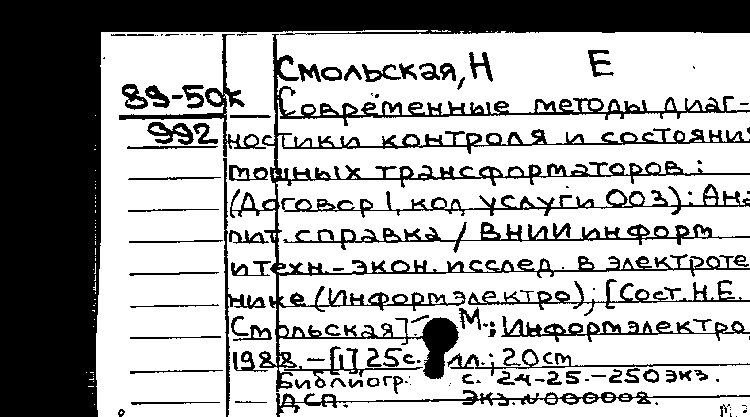 Смольская, Н Е
89-50к
Современные методы диаг-
992
ностики контроля и состояния
мощных трансформаторов:
(Договор 1, код услуги 003): Ана
лит. справка / ВНИИ информ
и техн.-экон. исслед. в электроте
нике (Информэлектро); [Сост. Н.Е.
Смольская] - М.; Информэлектро,
1988. - [1], 25 с. илл.; 20 cm
Библиогр. с. 24-25. - 250 экз.
ДСП. Экз. N 000008.